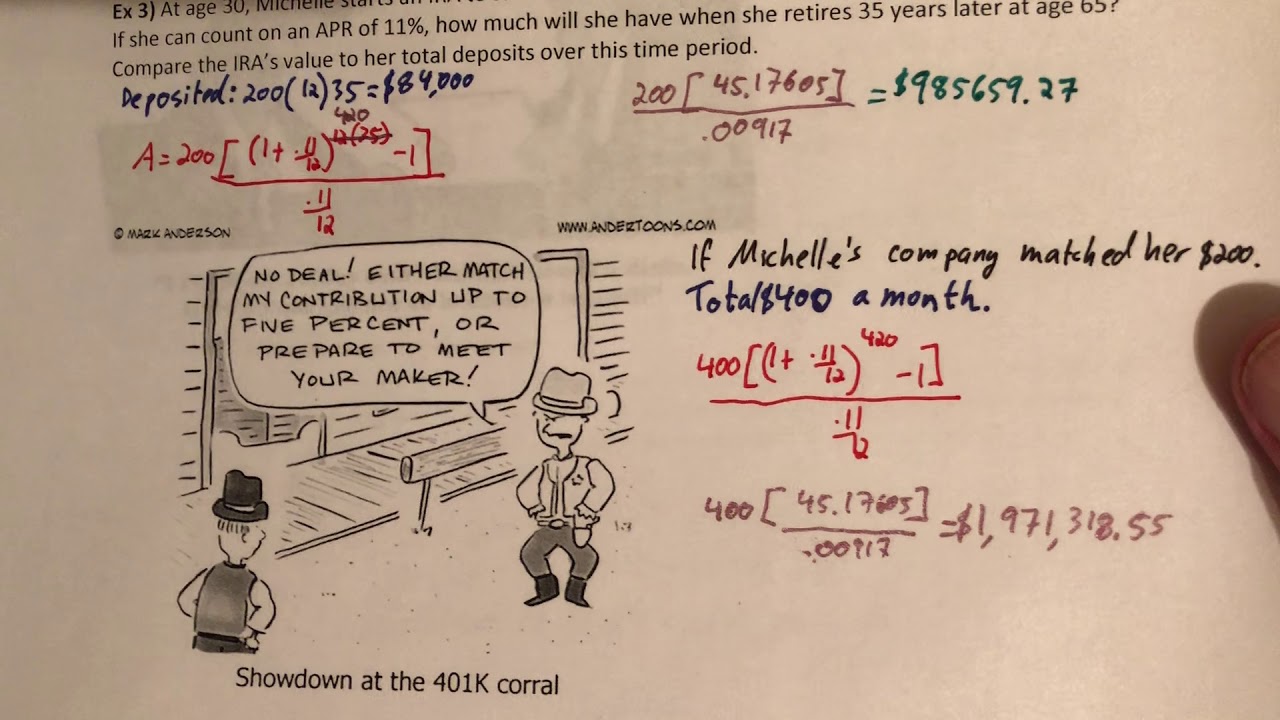 Ex 3) At age 30, Michelle starts an IRA to
If she can count on an APR of 11%, how much will she have when she retires 35 years later at age 65?
Compare the IRA's value to her total deposits over this time period.
Deposited: 200(12)35 = $84,000
200[45.17605] / .00917 = $985659.27
A = 200[(1 + .11/12)^420 12(35) - 1] / .11/12
© MARK ANDERSON
WWW.ANDERTOONS.COM
NO DEAL! EITHER MATCH
MY CONTRIBUTION UP TO
FIVE PERCENT, OR
PREPARE TO MEET
YOUR MAKER!
If Michelle's company matched her $200.
Total $400 a month.
400[(1 + .11/12)^420 - 1] / .11/12
400[45.17605] / .00917 = $1,971,318.55
Showdown at the 401K corral